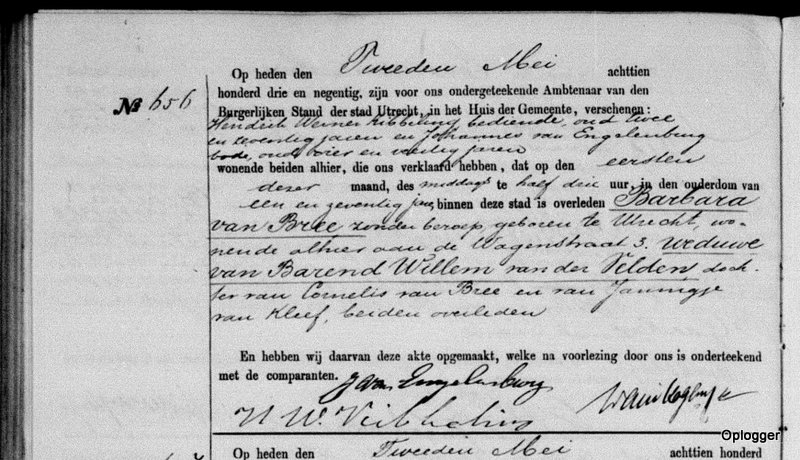 Nº 656
Op heden den Tweeden Mei achttien
honderd drie en negentig, zijn voor ons ondergeteekende Ambtenaar van den
Burgerlijken Stand der stad Utrecht, in het Huis der Gemeente, verschenen:
Hendrik Werner bediende, oud twee
en zeventig jaren en Johannes van Engelenburg
bode, oud vier en veertig jaren
wonende beiden alhier, die ons verklaard hebben, dat op den eersten
dezer maand, des middags te half drie uur, in den ouderdom van
een en zeventig jaar, binnen deze stad is overleden Barbara
van Bree zonder beroep, geboren te Utrecht, wo-
nende alhier aan de Wagenstraat 3. weduwe
van Barend Willem van der Velden, doch-
ter van Cornelis van Bree en van Jannigje
van Kleef, beiden overleden
En hebben wij daarvan deze akte opgemaakt, welke na voorlezing door ons is onderteekend
met de comparanten. J van Engelenburg
H W
Op heden den Tweeden Mei achttien honderd
Oplogger